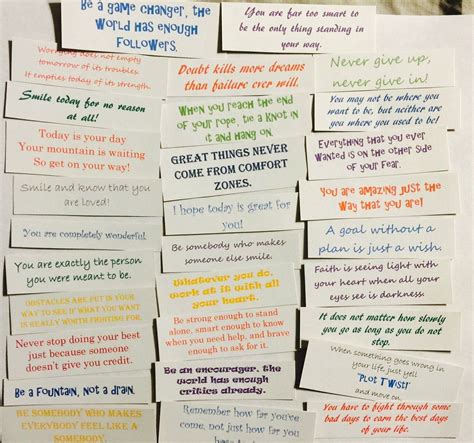 Be a game changer, the
World has enough
Followers.
You are far too smart to
be the only thing standing in
your way.
Worrying does not empty
tomorrow of its troubles.
It empties today of its strength.
Doubt kills more dreams
than failure ever will.
Never give up,
never give in!
Smile today for no reason
at all!
When you reach the end
of your rope, tie a knot in
it and hang on.
You may not be where you
want to be, but neither are
you where you used to be!
Today is your day
Your mountain is waiting
So get on your way!
Great things never
come from comfort
zones.
Everything that you ever
Wanted is on the other side
of your Fear.
Smile and know that you
are loved!
You are amazing just the
Way that you are!
I hope today is great for
you!
You are completely wonderful.
A goal without a
plan is just a wish.
Be somebody who makes
someone else smile.
You are exactly the person
you were meant to be.
Faith is seeing light with
your heart when all your
eyes see is darkness.
Whatever you do,
work at it with all
your heart.
Obstacles are put in your
way to see if what you want
is really worth fighting for.
Be strong enough to stand
alone, smart enough to know
when you need help, and brave
enough to ask for it.
It does not matter how slowly
you go as long as you do not
stop.
Never stop doing your best
just because someone
doesn't give you credit.
Be an encourager, the
world has enough
critics already.
When something goes wrong in
your life, just yell
"Plot Twist!"
and move on.
Be a Fountain, not a drain.
Be somebody who makes
everybody feel like a
somebody.
Remember how far you've
come, not just how far
You have to fight through some
bad days to earn the best days
of your life.